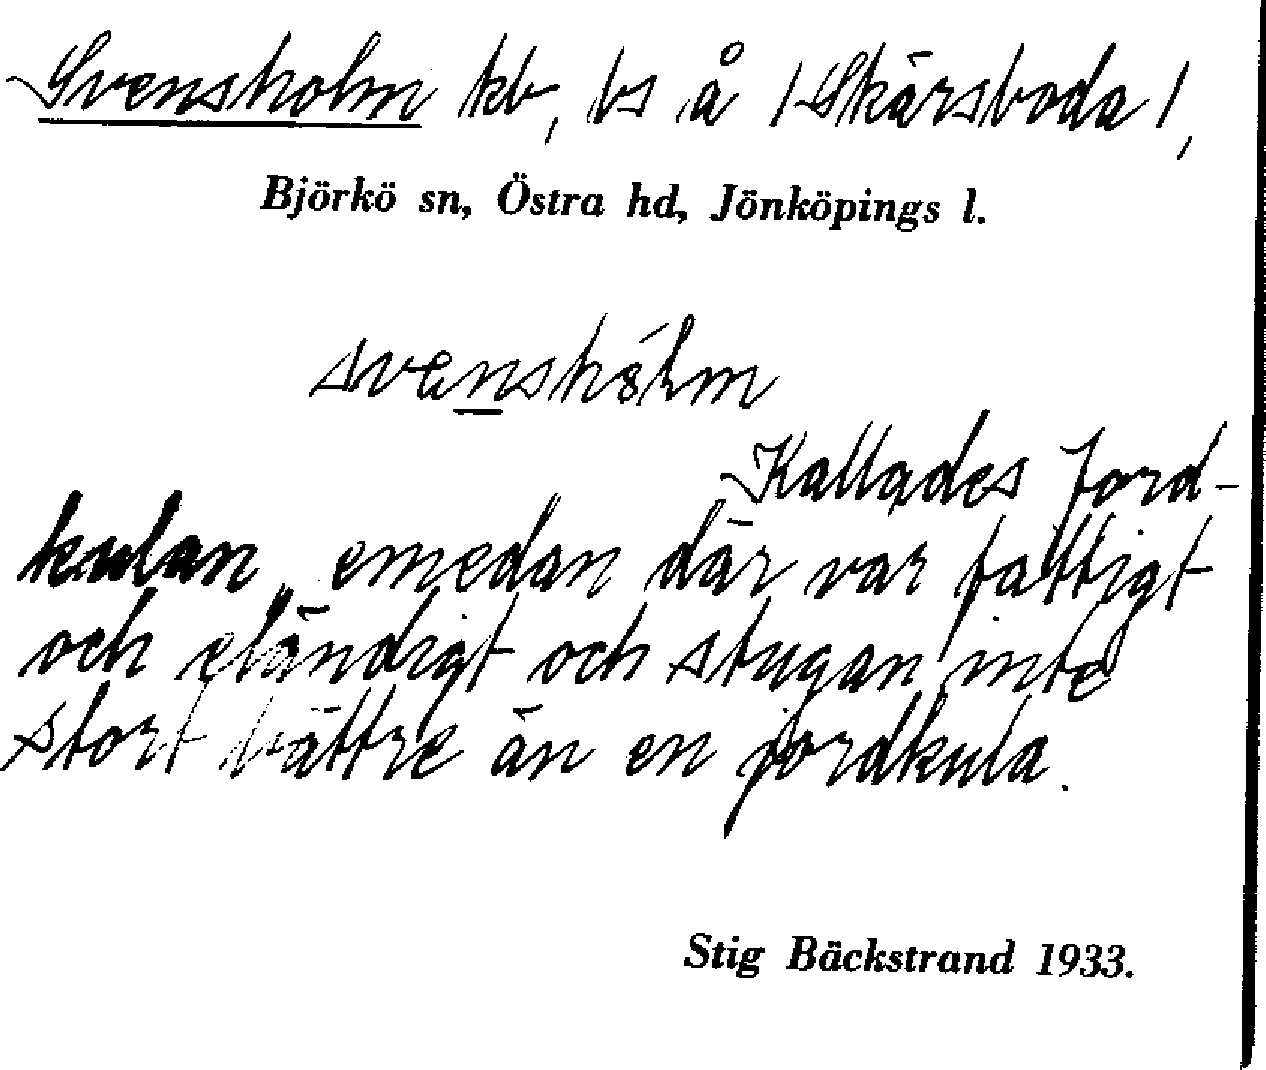 Svensholm kb, bs å /Skärsboda/,
Björkö sn, Östra hd, Jönköpings l.
svenshólm
Kallades Jord-
kulan, emedan där var fattigt
och eländigt och stugan inte
stort bättre än en jordkula.
Stig Bäckstrand 1933.